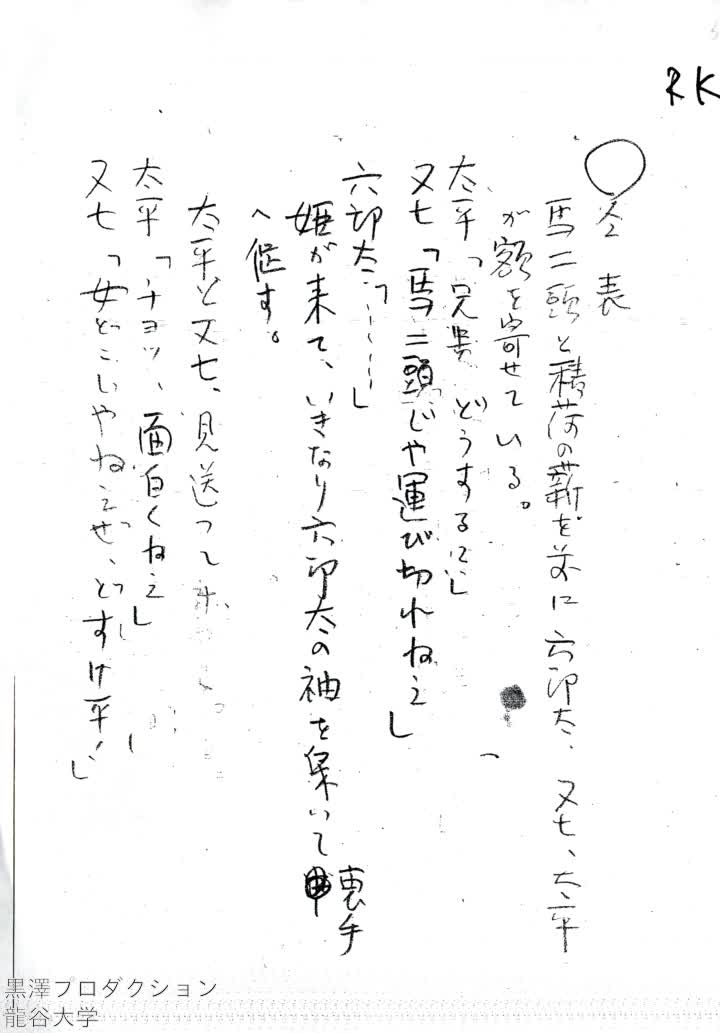 RK
表
馬二頭と積荷の薪を前に六郎太、又七、太平
が額を寄せている。
太平「 どうする
又七「馬二頭じゃ運び切れねえ」
六郎太「……」
姫が来て、いきなり六郎太の袖を引いて裏手
へ促す。
太平と又七、見送って
太平「チョッ、面白くねえ」
又七「女どこじゃねえぜ、どすけ平!」
黒澤プロダクション
龍谷大学